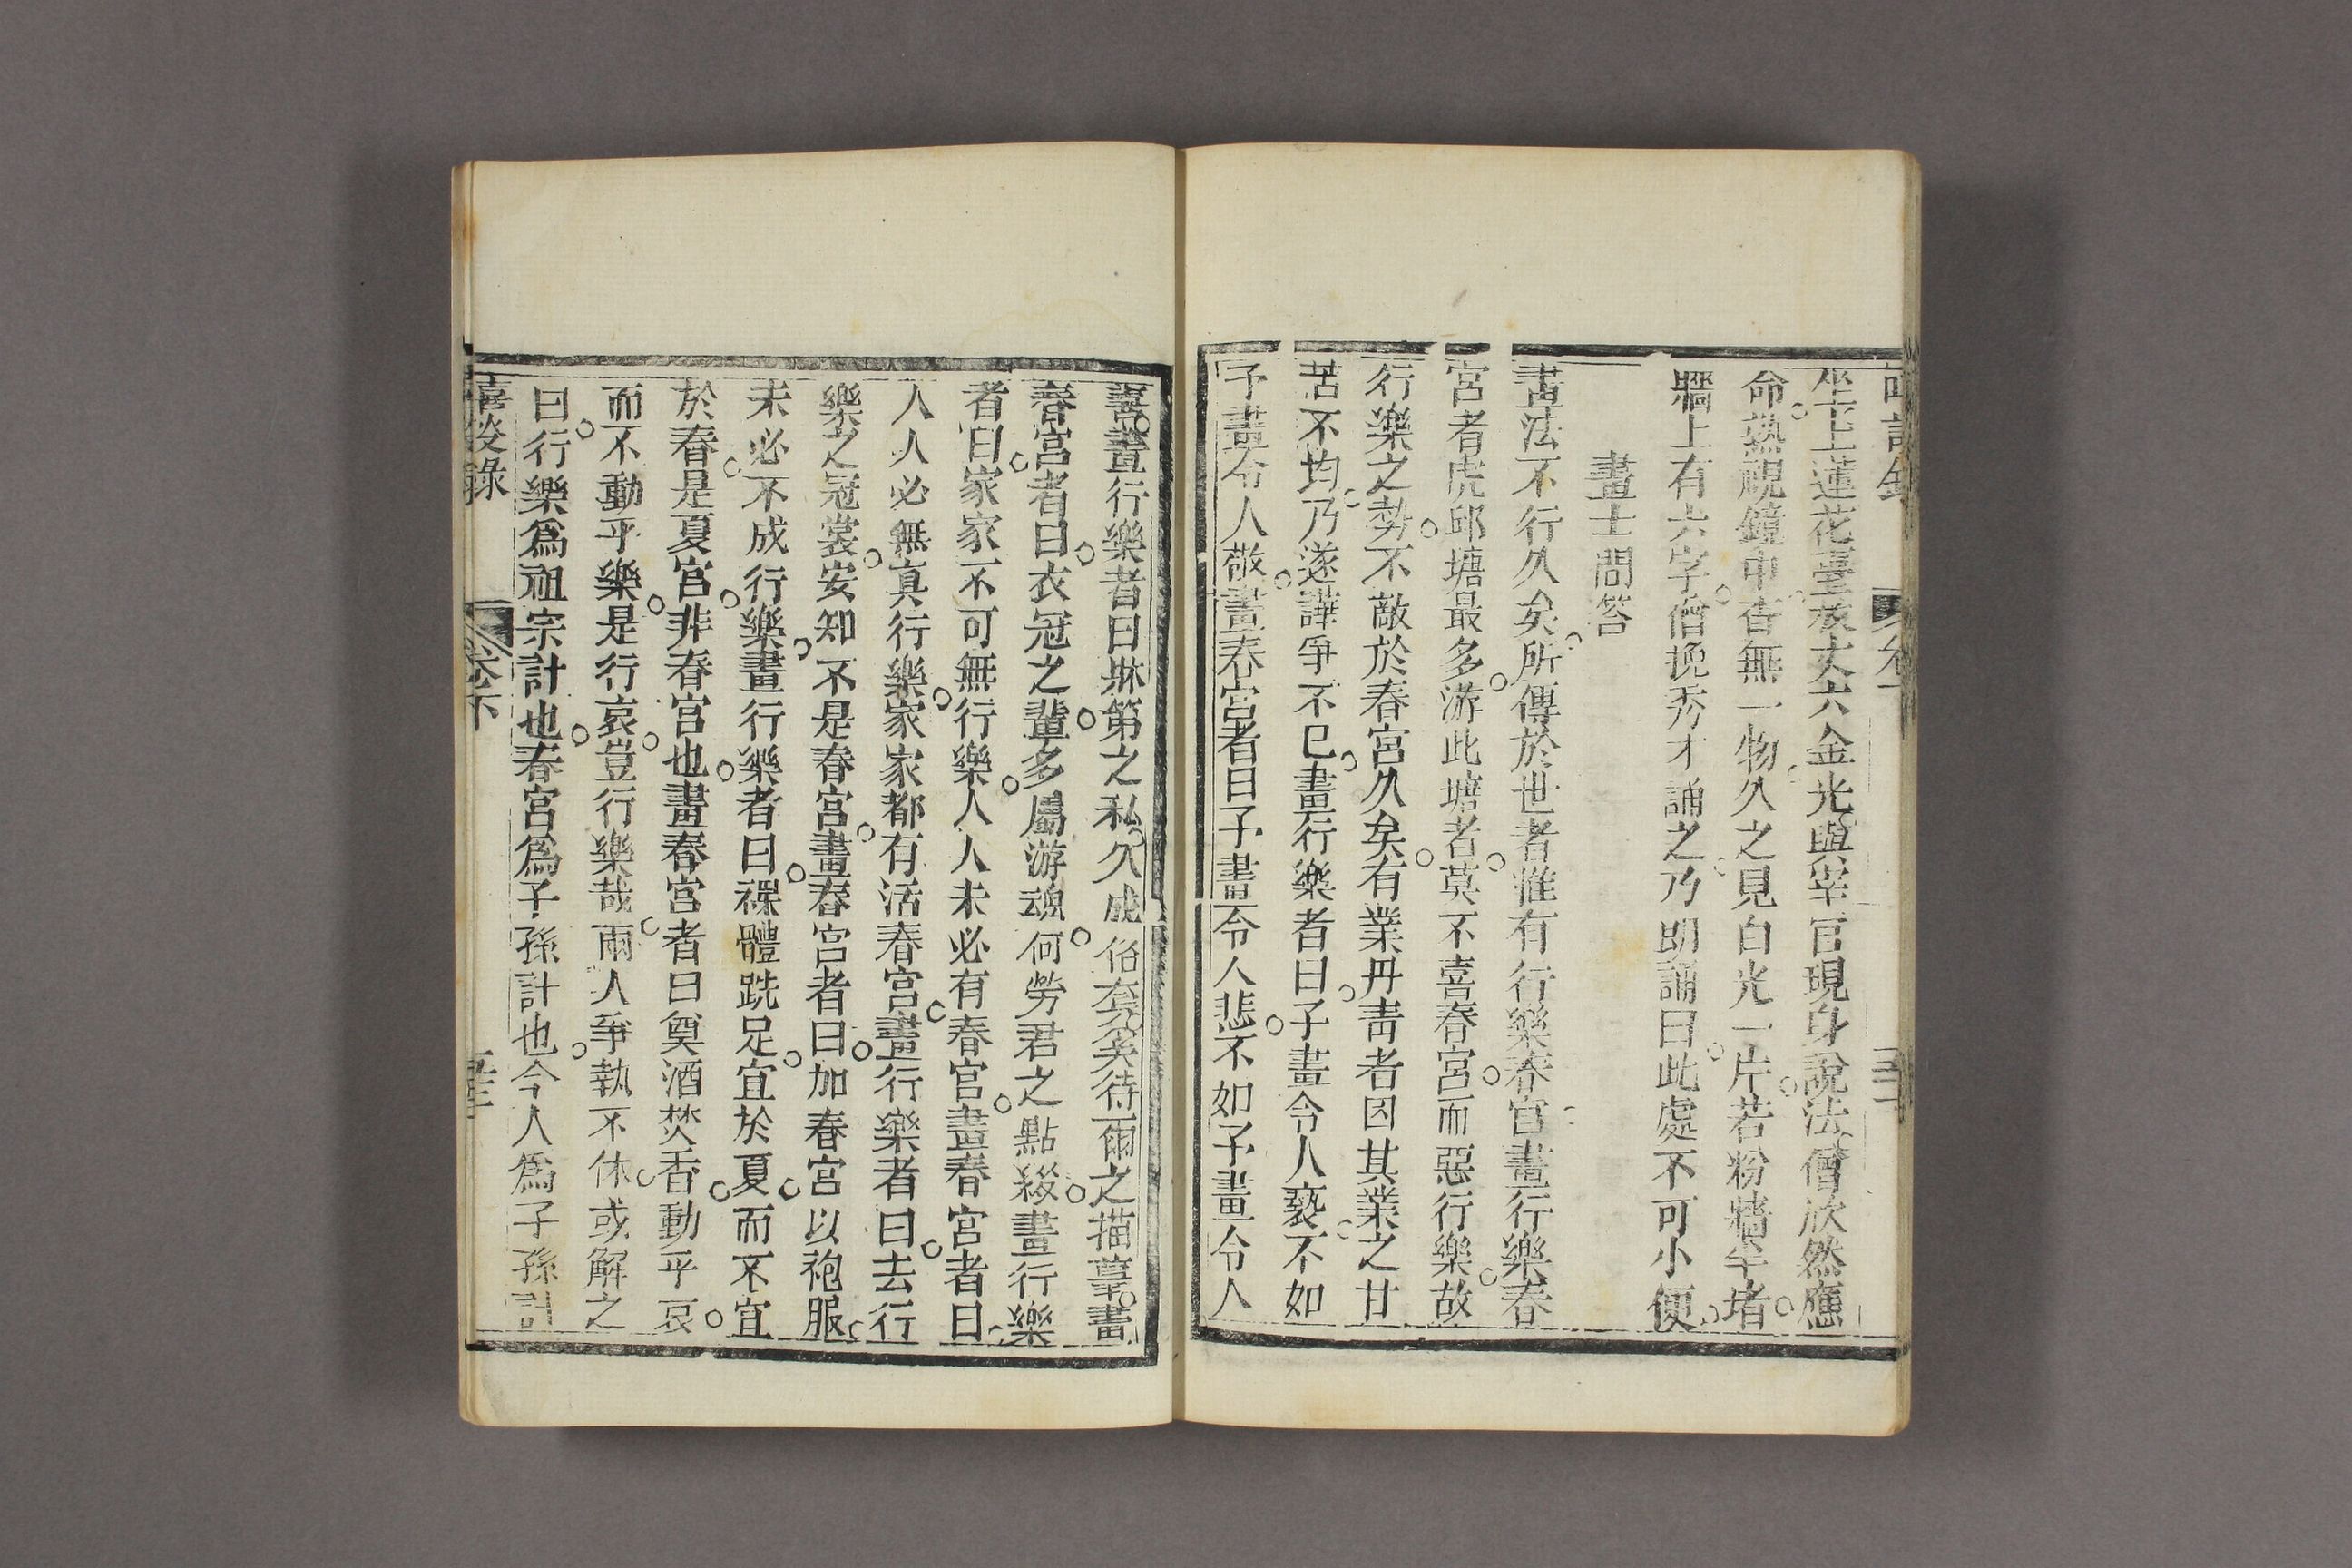 坐上蓮花臺放丈六金光與宰官現身說法僧欣然應
命熟視鏡中杳無一物久之見白光一片若粉牆半堵
牆上有六字僧挽秀才誦之乃朗誦曰此處不可小便
畫士問答
畫法不行久矣所傳於世者惟有行樂春宮畫行樂春
宮者虎邱塘最多游此塘者莫不喜春宮而惡行樂故
行樂之勢不敵於春宮久矣有業丹青者因其業之甘
苦不均乃遂譁爭不已畫行樂者曰子畫令人褻不如
予畫令人敬畫春宮者曰子畫令人悲不如予畫令人
喜畫行樂者曰牀第之私久成俗套奚待爾之描摹畫
春宮者曰衣冠之輩多屬游魂何勞君之點綴畫行樂
者曰家家不可無行樂人人未必有春宮畫春宮者曰
人人必無真行樂家家都有活春宮畫行樂者曰去行
樂之冠裳安知不是春宮畫春宮者曰加春宮以袍服
未必不成行樂畫行樂者曰裸體跣足宜於夏而不宜
於春是夏宮非春宮也畫春宮者曰奠酒焚香動乎哀
而不動乎樂是行哀豈行樂哉兩人爭執不休或解之
曰行樂爲祖宗計也春宮爲子孫計也今人爲子孫計
嘻談錄 卷下 五十三